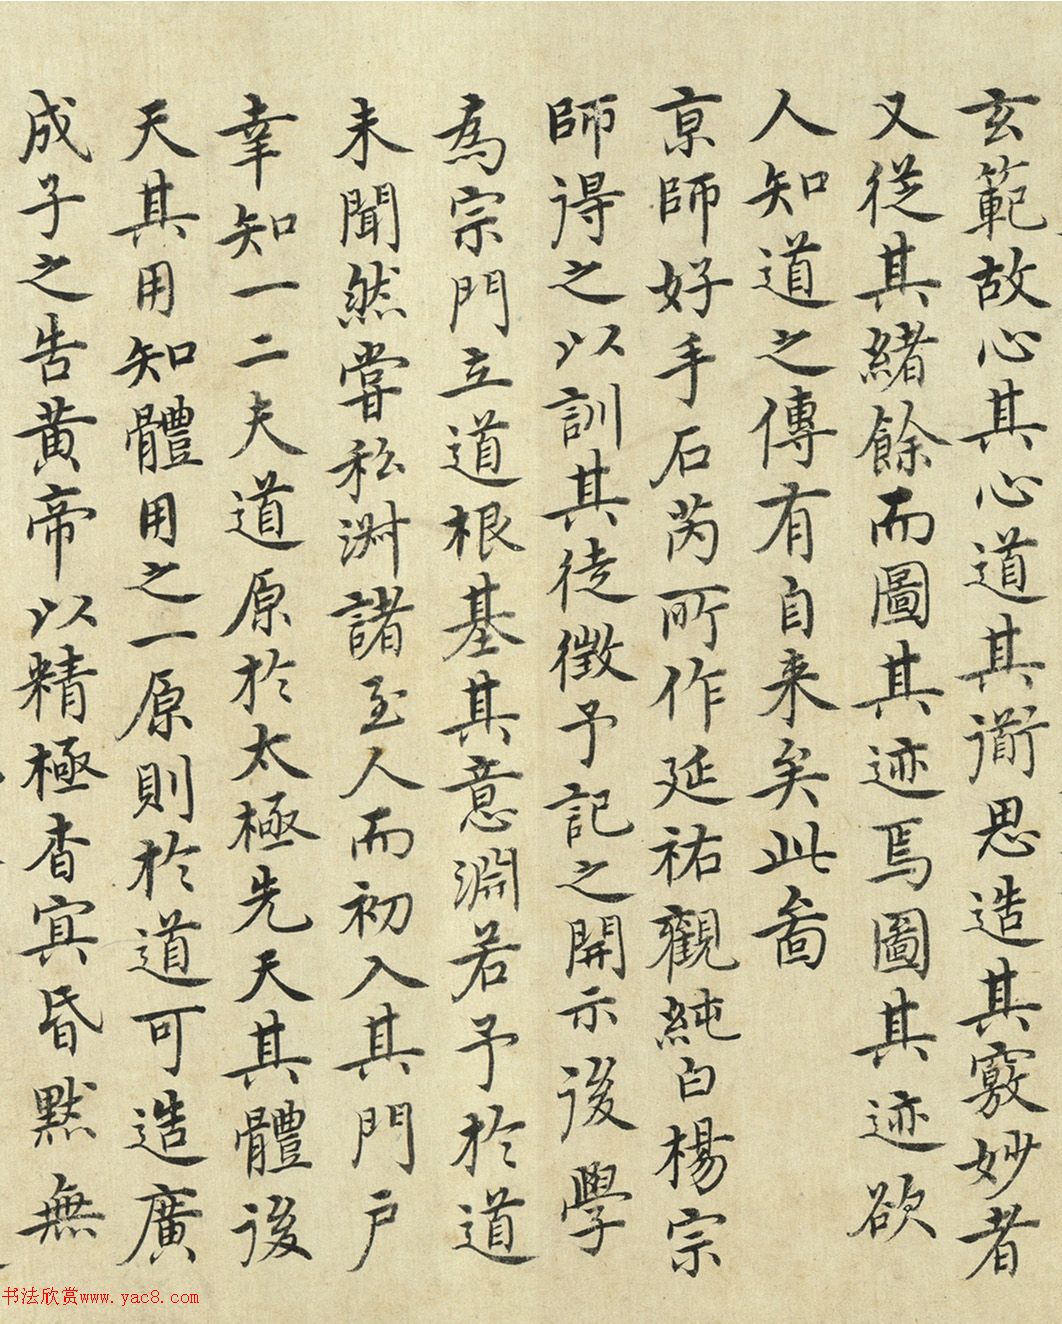 玄範故心其心道其衟思造其竅妙者
又從其緒餘而圖其迹焉圖其迹欲
人知道之傳有自来矣此啚
京師好手石芮所作延祐觀純白楊宗
師得之以訓其徒徵予記之開示後學
為宗門立道根基其意淵若予於道
未聞然嘗私淑諸至人而初入其門戶
幸知一二夫道原於太極先天其體後
天其用知體用之一原則於道可造廣
成子之告黃帝以精極杳冥昏默無
书法欣赏www.yac8.com